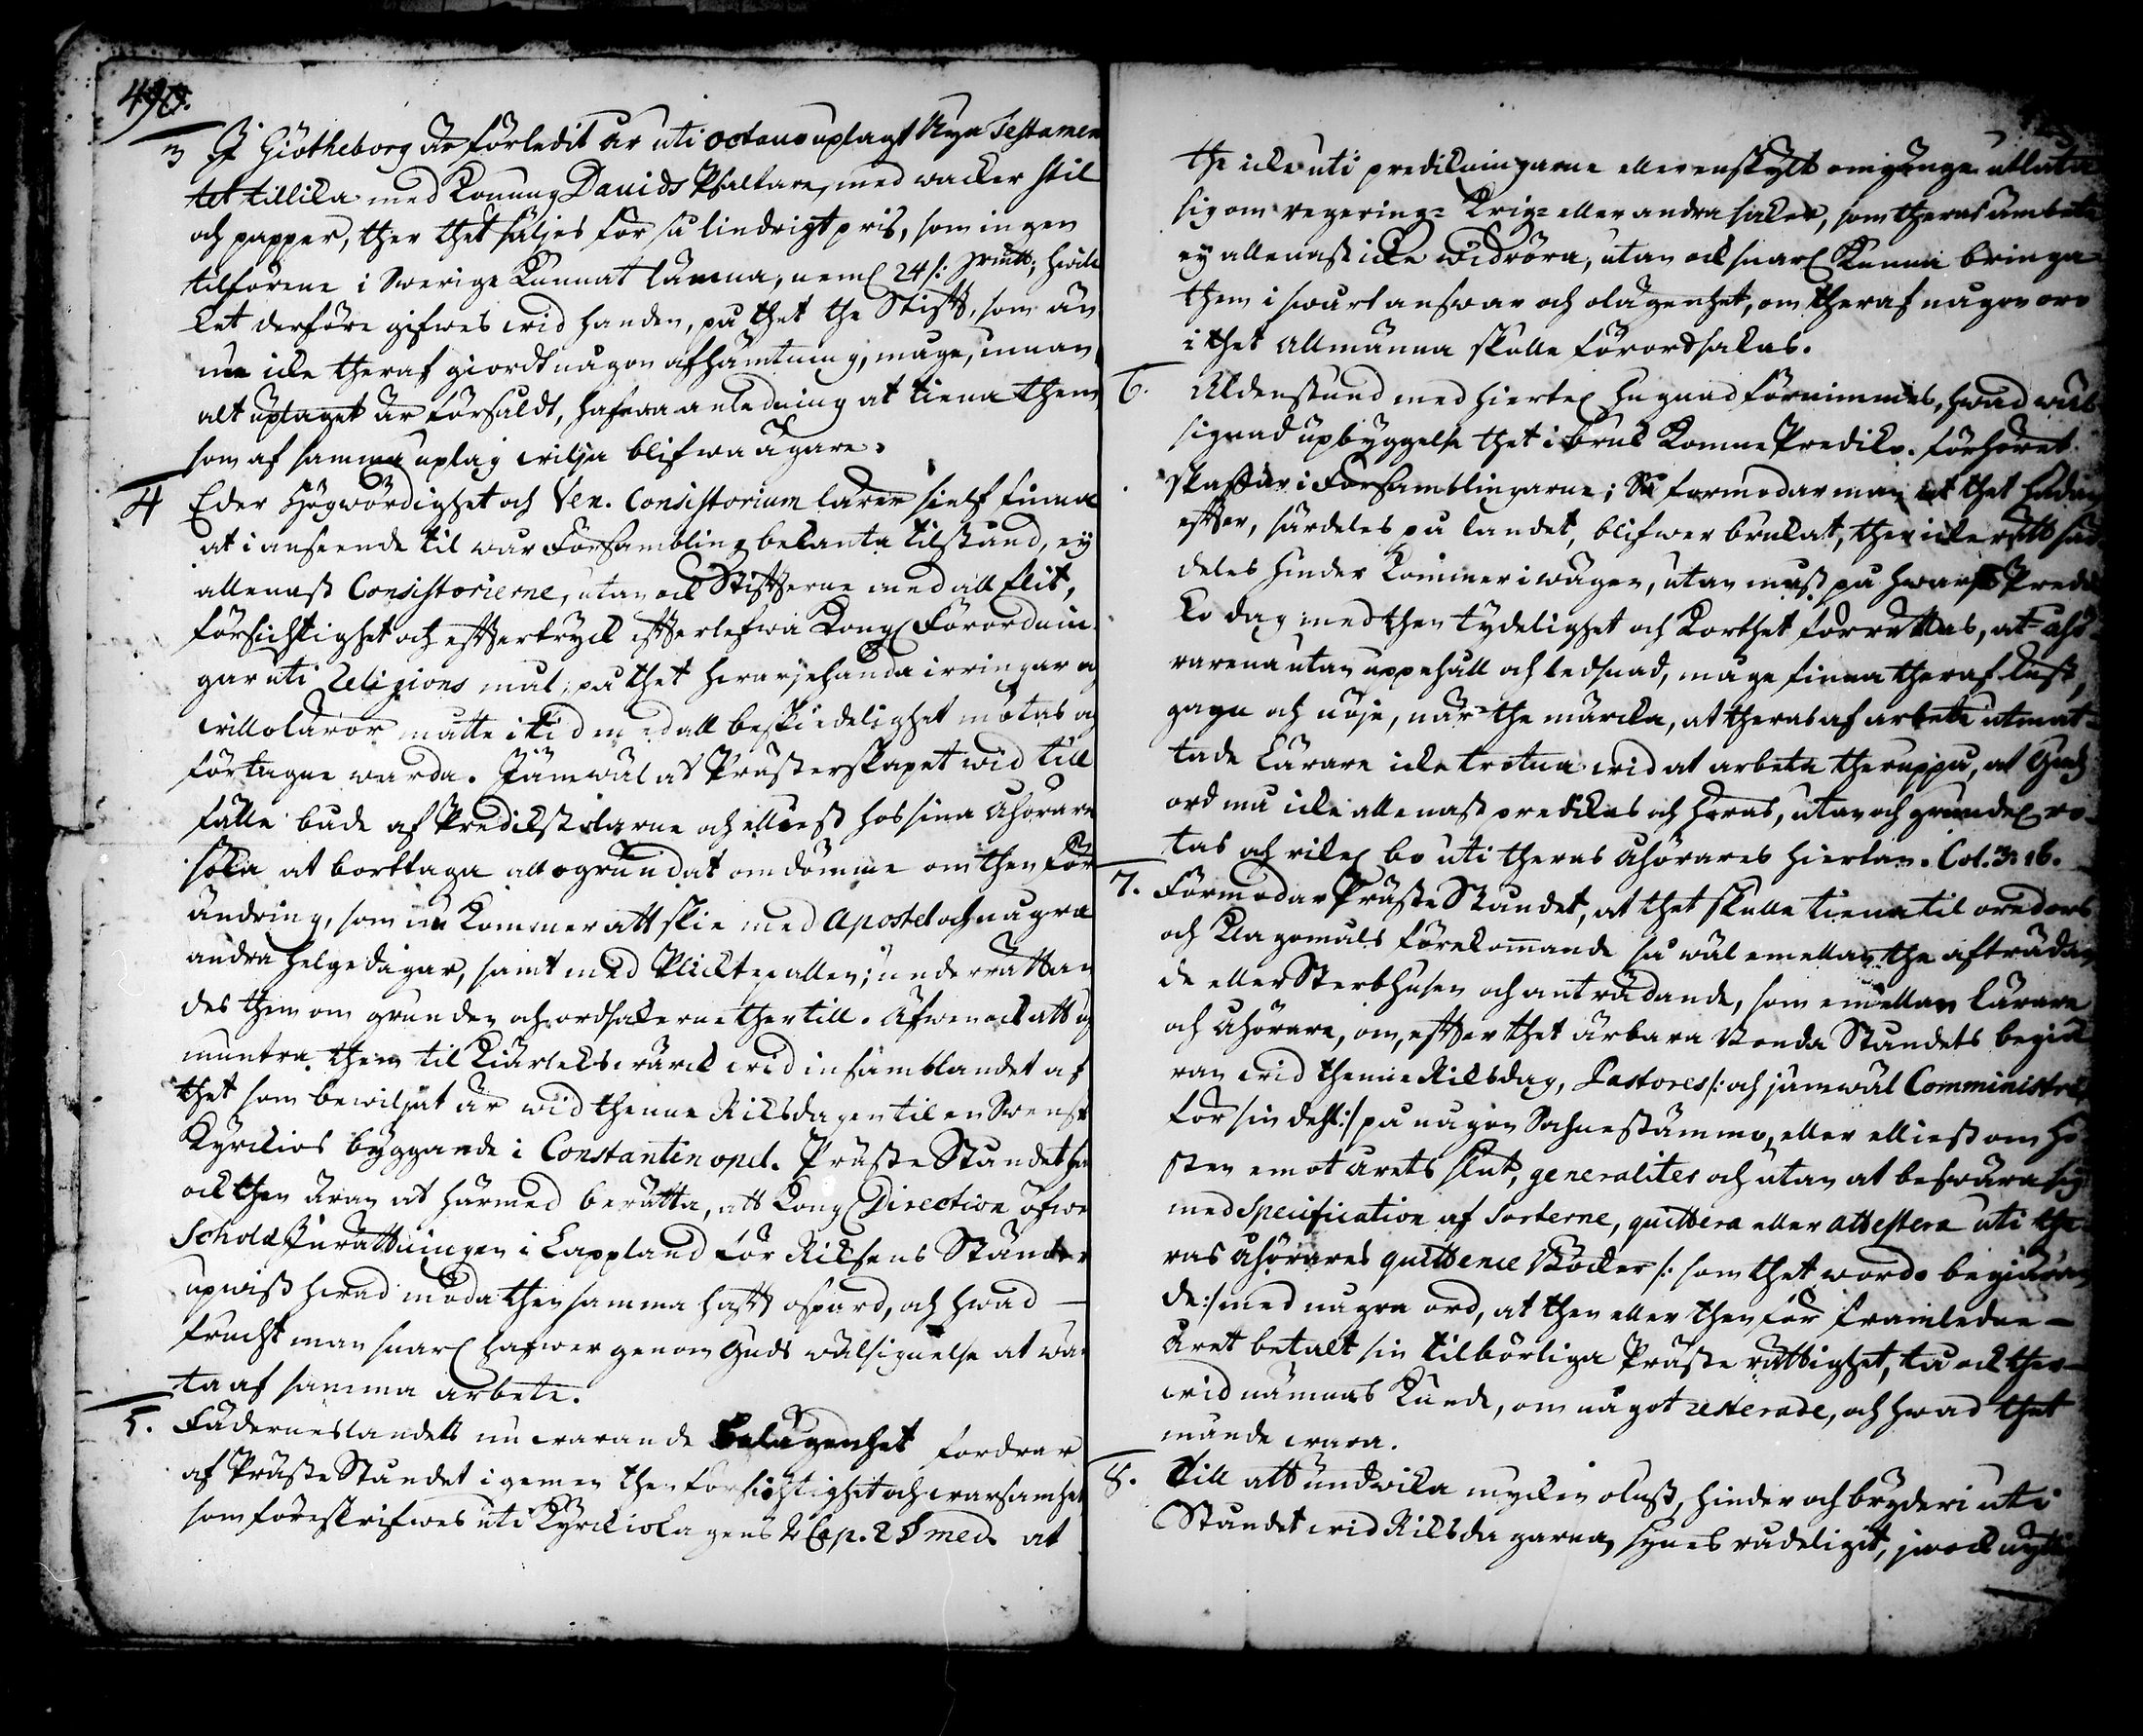 490.
3 I Giötheborg är förledit år uti octavo uplagt Nya Testamen
tet tillika med Konung Davids Psaltare, med wacker stil
och papper, ther thet säljes för så lindrigt pris, som ingen
tilförene i Swerige kunnat lämna, neml 24 /: Srmtt; hwil
ket derföre gifwes wid handen, på thet the Stift, som än
nu icke theraf giordt någon afhämtning, måge, innan
alt uplaget är försåldt, hafwa anledning at tiena them,
som af samma uplag wilja blifwa ägare.
4 Eder Högwördighet och Ven. Consistorium lärer sielf finna
at i anseende til wår Församblings bekanta tilstånd, ey
allenast Consistorierne, utan ock Stifterne med all flit,
försichtighet och eftertryck efterlefwa Kongl Förordnin
gar uti Religions mål, på thet hwarjehanda irringar och
willoläror måtte i tid med all beskiedelighet mötas och
förtagne warda. Jämwäl at Prästerskapet wid till
fälle både af Predikstolarne och elliest hos sina Åhörare
söka at borttaga alt ogrundat omdömme om then för
ändring, som nu kommer att skie med Apostel och några
andra helgedagar, samt med Plicktepallen; underrättan
des them om grunden och ordsakerne ther till. Äfwen ock att up
muntra them til Kiärleks wärck wid insamblandet af
thet som bewiljat är wid thenne Riksdagen til en Swensk
Kyrckios byggande i Constantinopel. Präste Ståndet har
ock then äran at härmed berätta, att Kongl Direction öfwer
Schole Inrättningen i Lappland för Riksens Ständer
upwist hwad möda then samma haft ospard, och hwad
frucht man snarl hafwer genom Guds wälsignelse at wän
ta af samma arbete.
5. Fäderneslandets nu warande belägenhet fordrar
af Präste Ståndet i gemen then försichtighet och warsamhet,
som föreskrifwes uti Kyrckiolagens 2 Cap. 2 § med at
the icke uti predikningarne eller enskylt omgänge utlåta
sig om regerings= Krigs= eller andra saker, som theras ämbete
ey allenast icke widröra, utan ock snarl kunna bringa
them i swårt answar och olägenhet, om theraf någon oro
i thet Allmänna skulle förordsakas.
6. Aldenstund med hiertel hugnad förnimmes, hwad wäl
signad upbyggelse thet i bruk komne Prediko-förhöret
skaffar i Församblingarne; Så formodar man at thet hädan
efter, särdeles på landet, blifwer brukat, ther icke rätt sär
deles hinder kommer i wägen, utan måst på hwar Predi
ko dag med then tydelighet och korthet förrättas, at åhö
rarena utan uppehåll och ledsnad, måge finna theraf lust,
gagn och nöje, när the märcka, at theras af arbete utmat=
tade Lärare icke tröttna wid at arbeta theruppå, at Guds
ord må icke allenast predikas och höras, utan och grundel ro=
tas och rikel bo uti theras Åhörares hiertan. Col. 3: 16.
7. Förmodar Präste Ståndet, at thet skulle tiena til oredors
och Klagomåls förekommande så wäl emellan the afträdan
de eller Sterbhusen och anträdande, som emellan lärare
och åhörare, om, efter thet ärbara Bonda Ståndets begiä
ran wid thenne Riksdag, Pastores /: och jämwäl Comministri
för sin dehl :/ på någon Sochnestämmo, eller elliest om hö
sten emot årets slut, generaliter och utan at beswära sig
med Specification af sorterne, quittera eller attestera uti the
ras åhörares quittence Böcker /: som thet wordo begiäran
de :/ med några ord, at then eller then för framledne
året betalt sin tilbörliga Präste rättighet, tå ock ther
wid nämnas kunde, om något resterade, och hwad thet
månde wara.
8. Till att undwika mycken olust, hinder och bryderi uti
Ståndet wid Riksdagarna, synes rådeligit, jwäl nyttigt